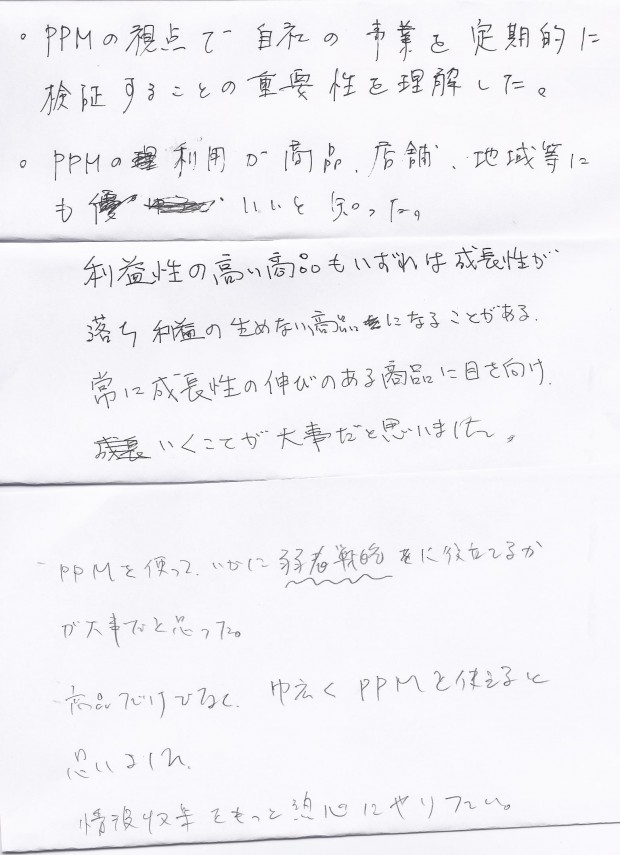 。PPMの視点で自社の事業を定期的に
検証することの重要性を理解した。
。PPMの利用が商品、店舗、地域等に
も いいと知った。
利益性の高い商品もいずれは成長性が
落ち利益の生めない商品になることがある.
常に成長性の伸びのある商品に目を向け.
いくことが大事だと思いました。
- PPMを使って、いかに弱者戦略に役立てるか
が大事だと思った。
- 商品だけでなく、巾広くPPMを使えると
思いました.
情報収集をもっと熱心にやりたい。